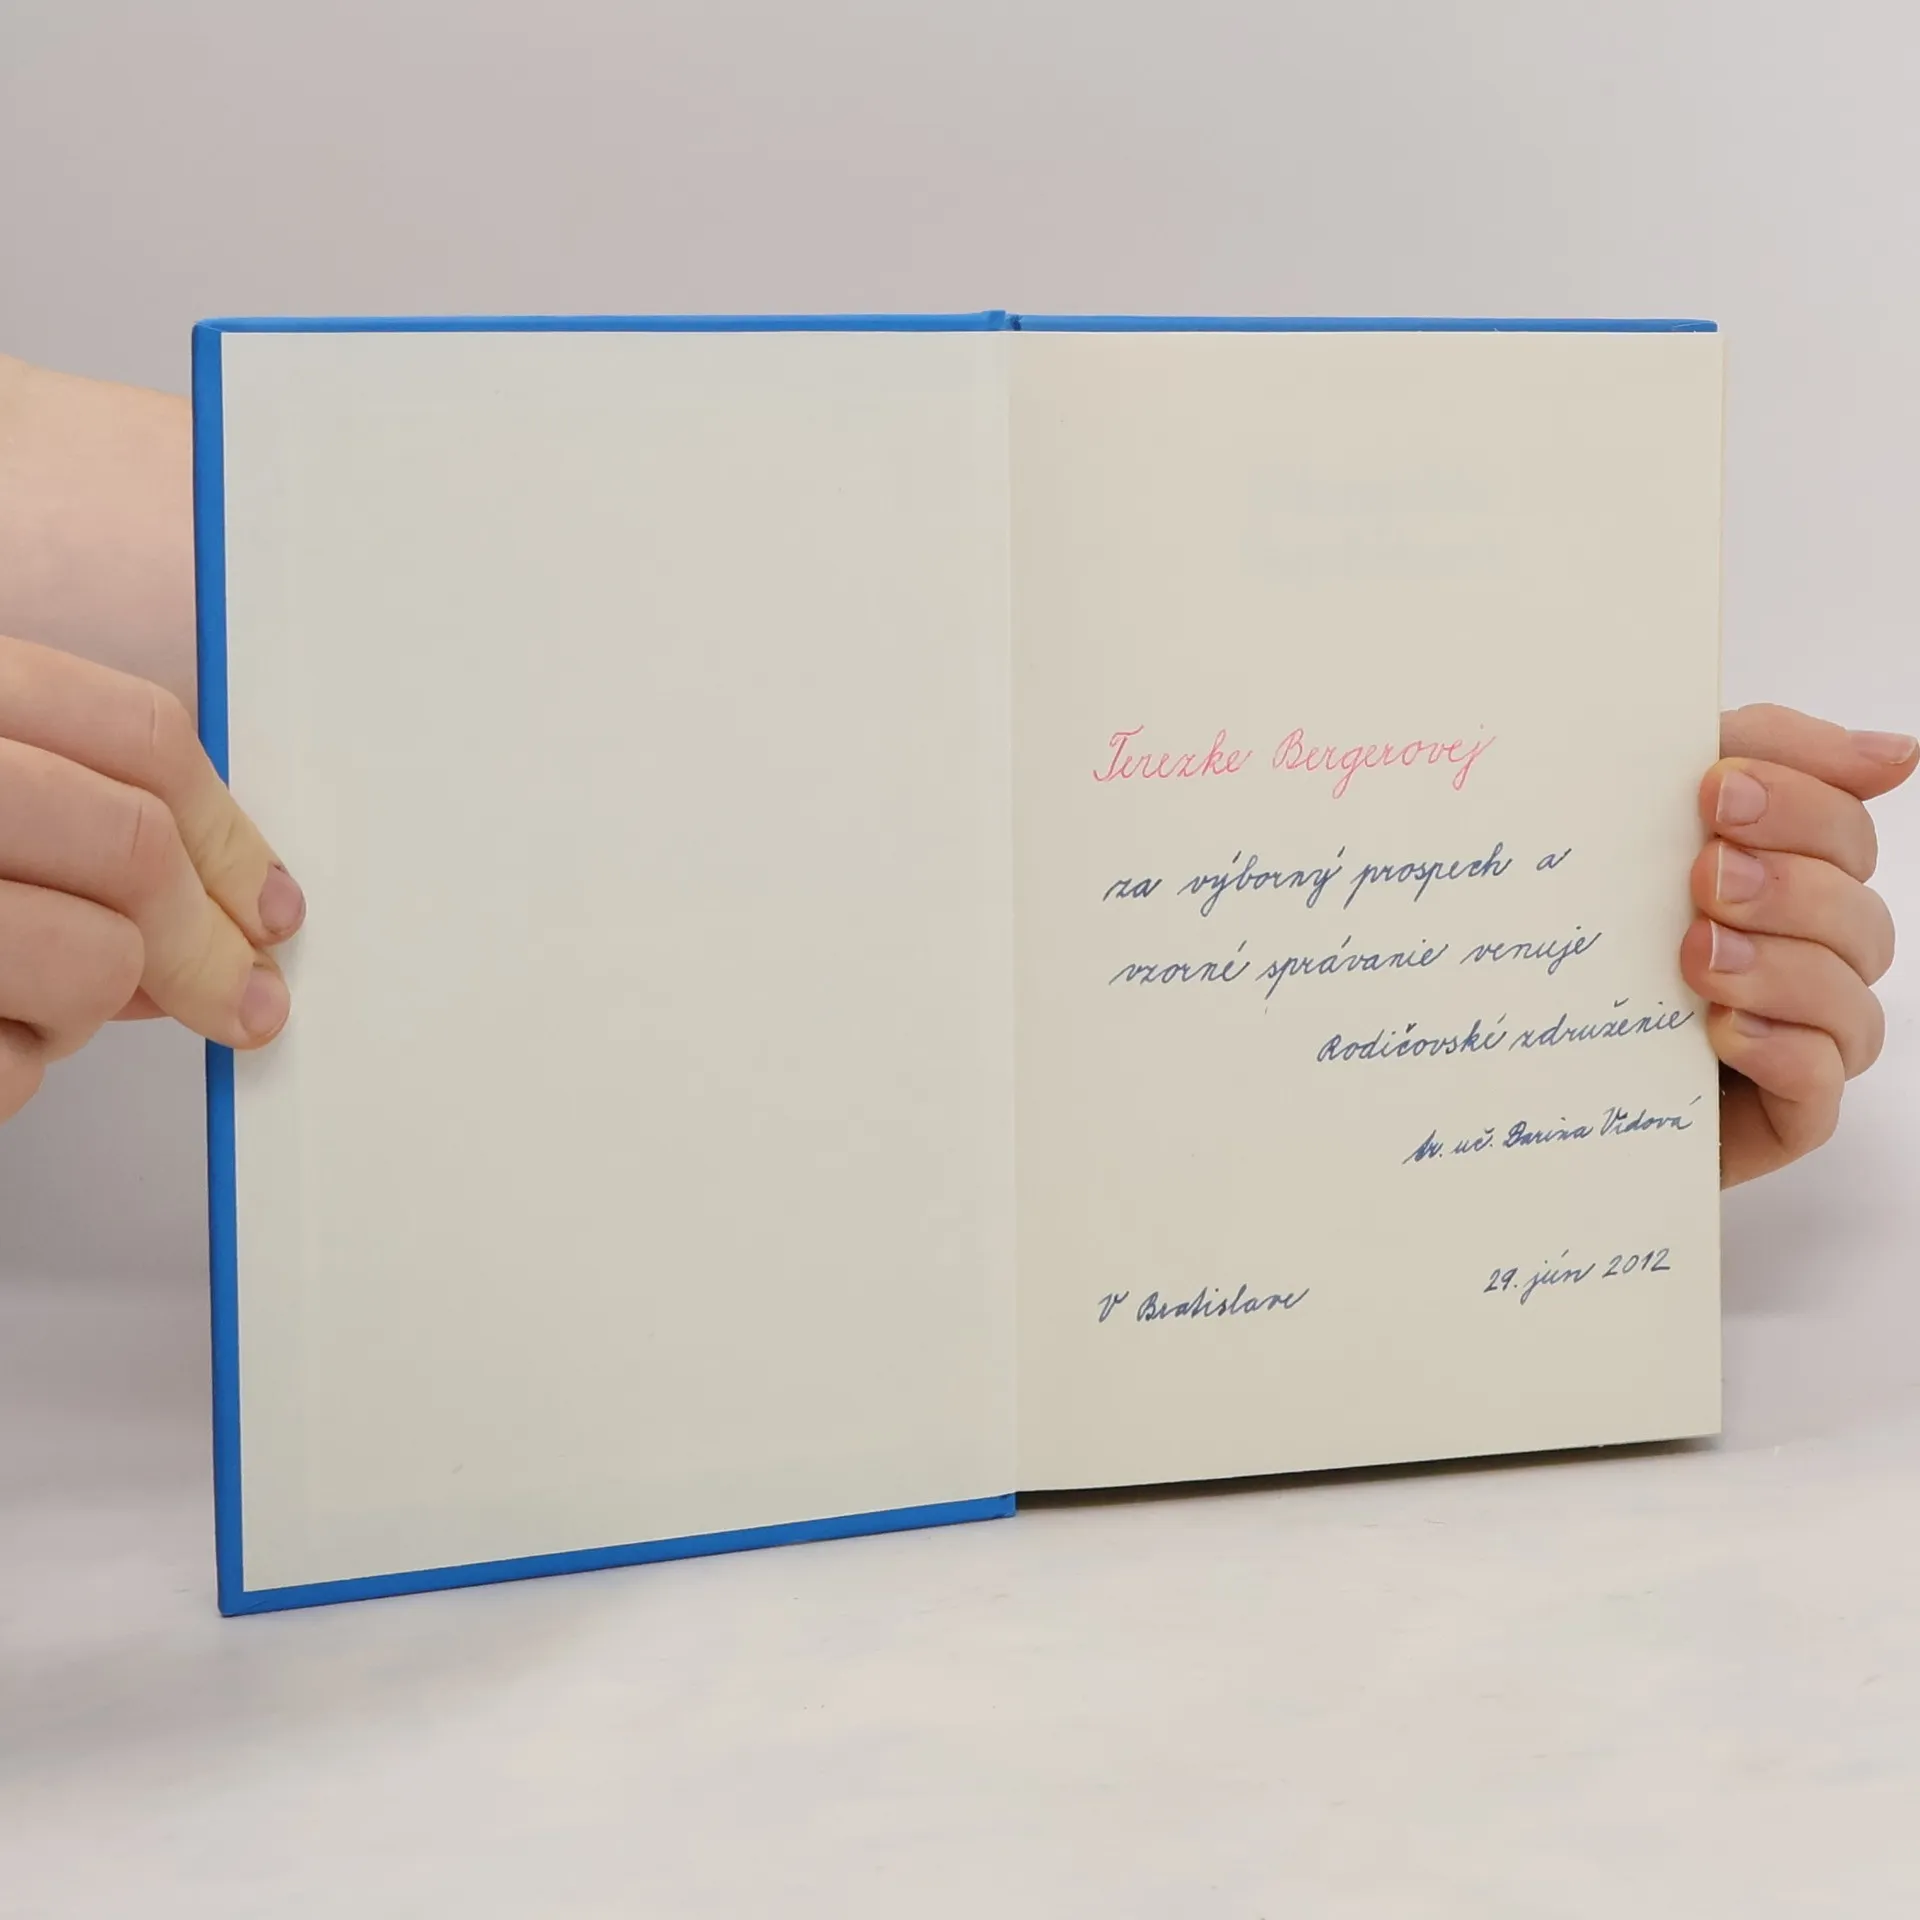 Terezke Bergerovej
za výborný prospech a
vzorné správanie venuje
Rodičovské združenie
tr. uč. Darina Vidová
V Bratislave 29. jún 2012